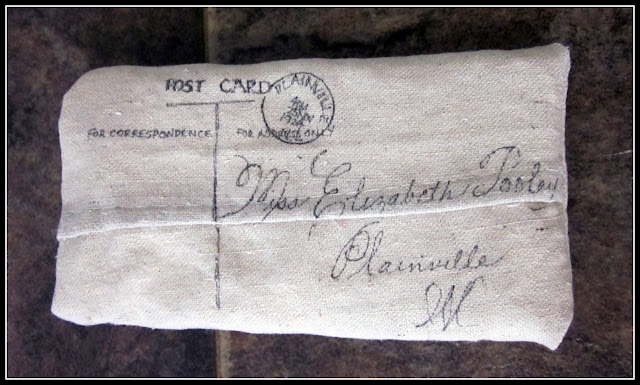 POST CARD
PLAINVILLE
FOR CORRESPONDENCE
FOR ADDRESS ONLY
Miss Elizabeth Pooley
Plainville